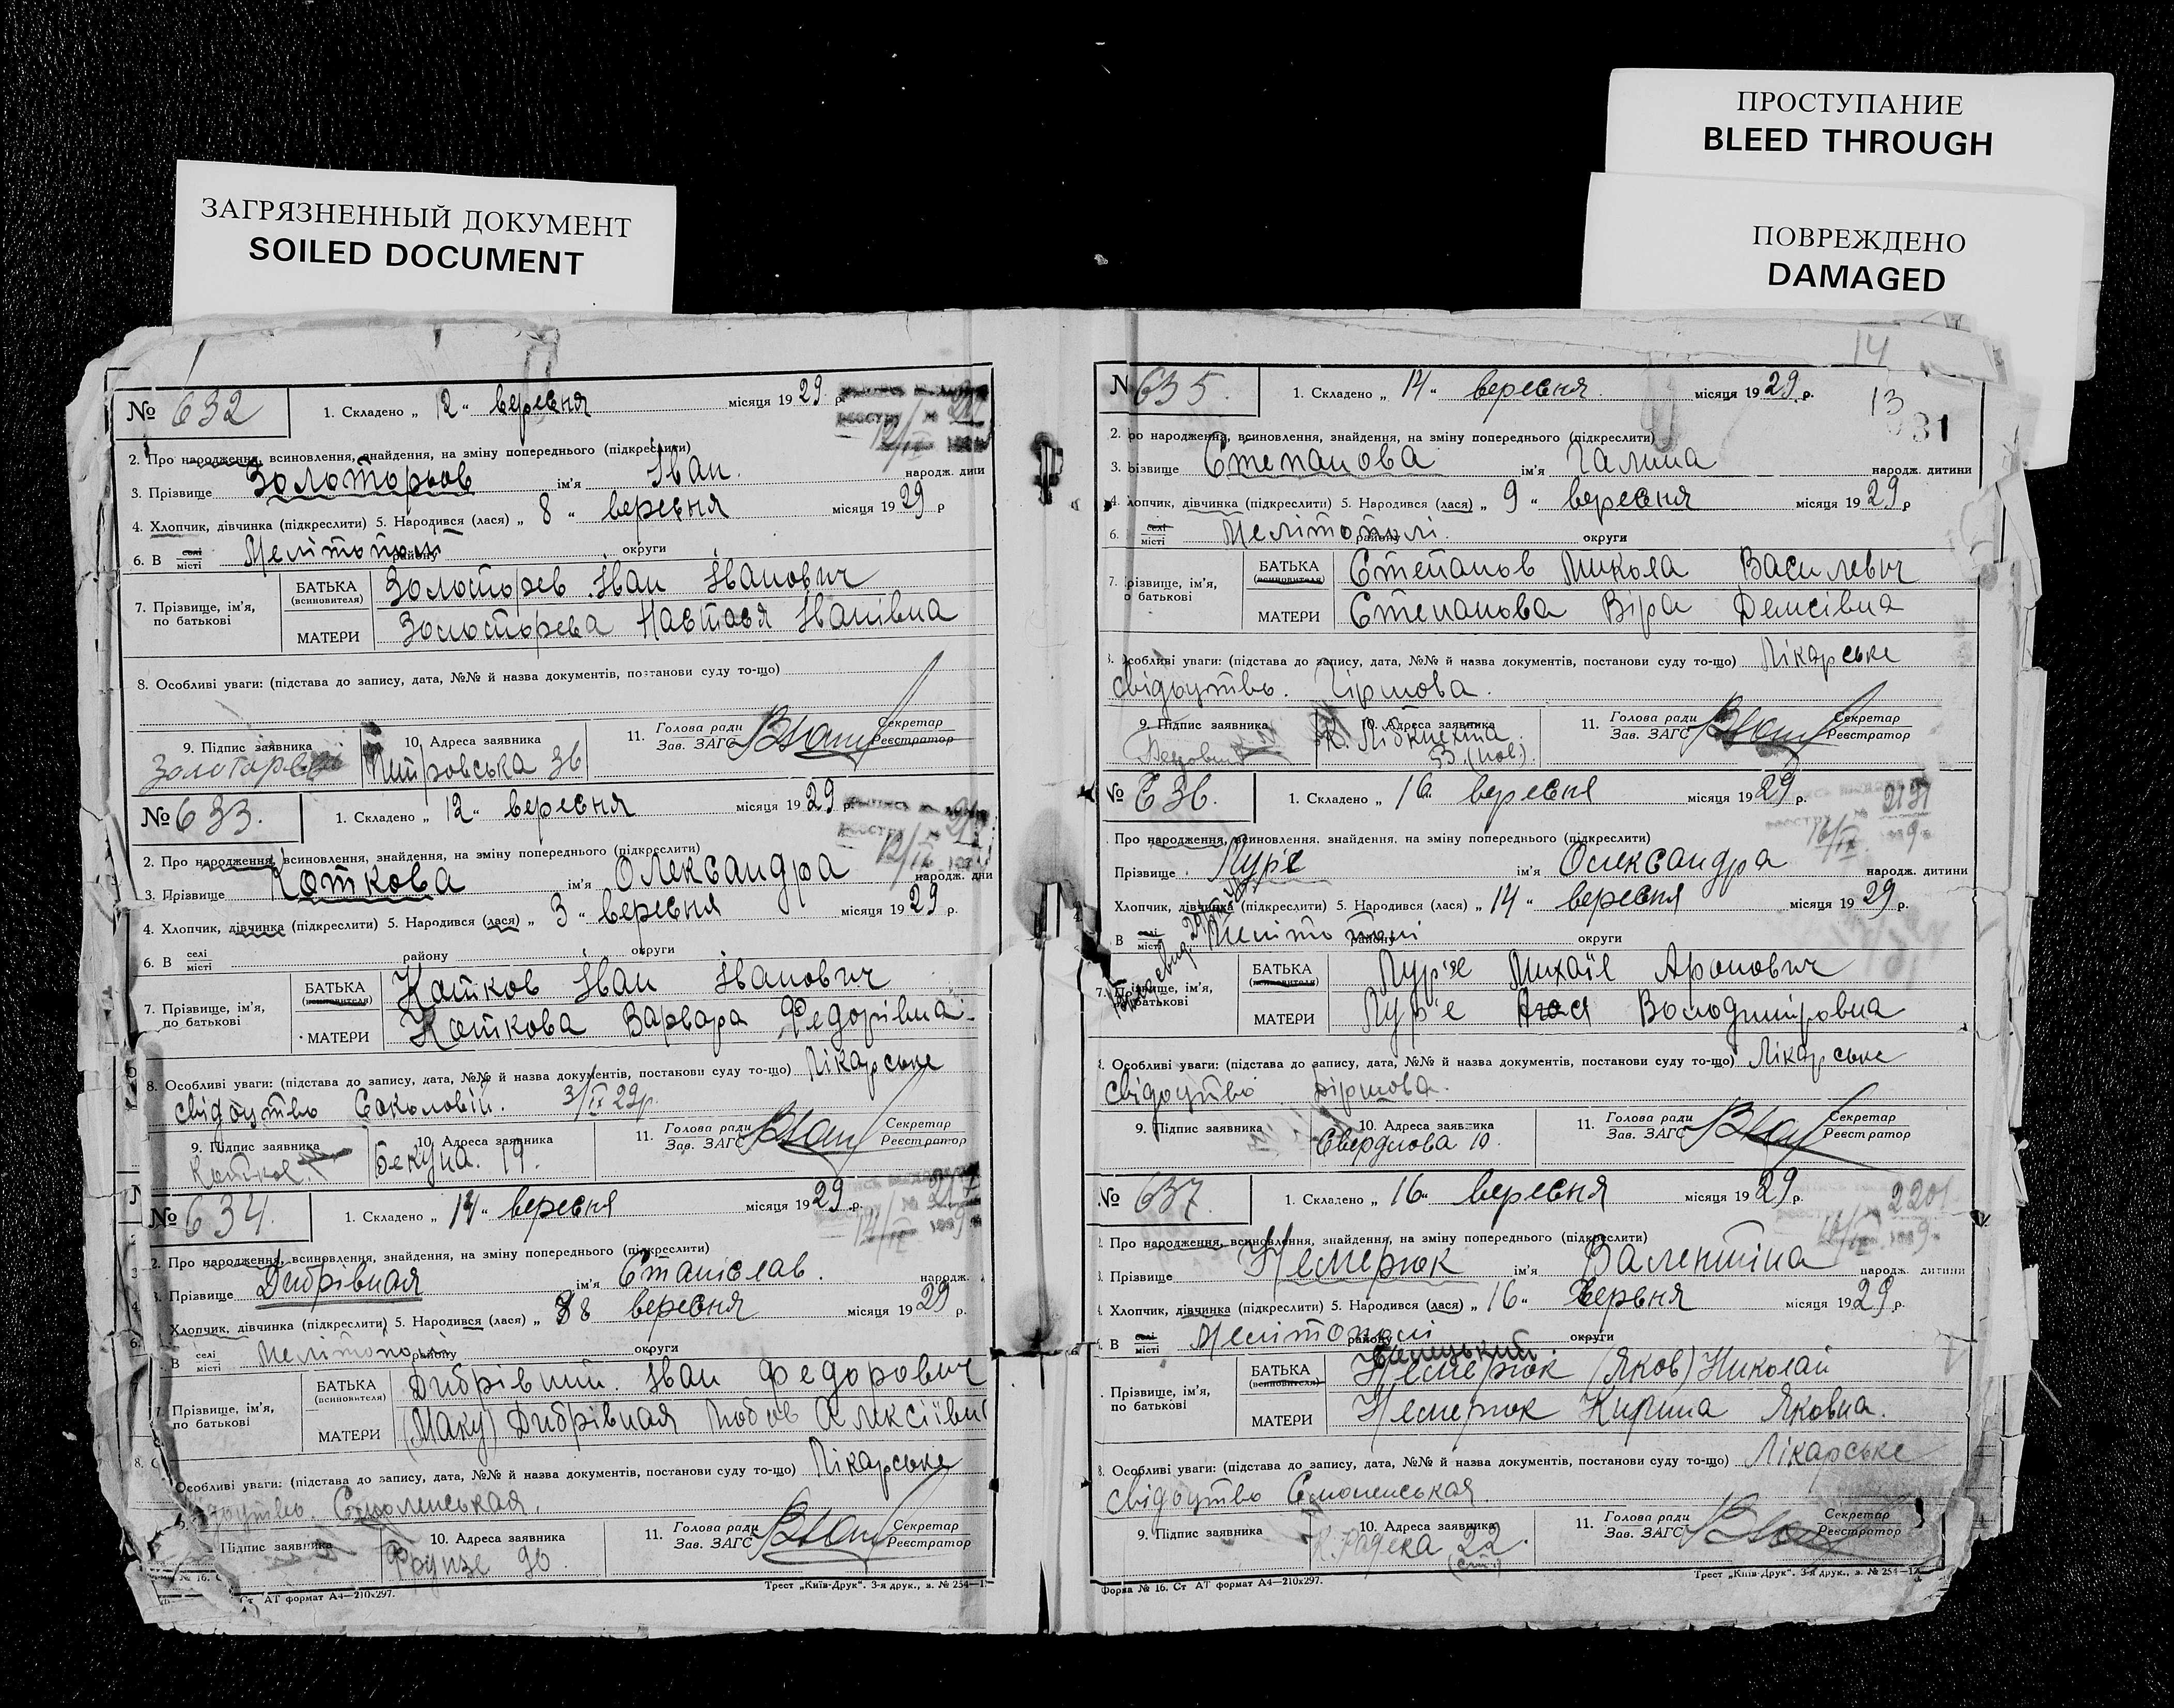 ПРОСТУПАНИЕ
BLEED THROUGH
ЗАГРЯЗНЕННЫЙ ДОКУМЕНТ
SOILED DOCUMENT
ПОВРЕЖДЕНО
DAMAGED
№ 632
1. Складено „ 12 “ вересня місяця 1929 р.
2. Про народження, всиновлення, знайдення, на зміну попереднього (підкреслити)
3. Прізвище Золоторьов ім'я Іван. народж. дити
4. Хлопчик, дівчинка (підкреслити) 5. Народився (лася) „ 8 “ вересня місяця 1929 р
6. В селі місті району округи
7. Прізвище, ім'я, по батькові
БАТЬКА (всиновителя) Золоторев Іван Іванович
МАТЕРИ Золоторева Настася Іванівна
8. Особливі уваги: (підстава до запису, дата, №№ й назва документів, постанови суду то-що)
9. Підпис заявника
10. Адреса заявника Питровська 36
11. Голова ради Зав. ЗАГС Секретар Реєстратор
№ 633.
1. Складено „ 12 “ вересня місяця 1929 р.
2. Про народження, всиновлення, знайдення, на зміну попереднього (підкреслити)
3. Прізвище Коткова ім'я Олександра народж. дни
4. Хлопчик, дівчинка (підкреслити) 5. Народився (лася) „ 3 “ вересня місяця 1929 р.
6. В селі місті району округи
7. Прізвище, ім'я, по батькові
БАТЬКА (всиновителя) Котков Іван Іванович
МАТЕРИ Коткова Варвара Федорівна
8. Особливі уваги: (підстава до запису, дата, №№ й назва документів, постанови суду то-що) Лікарське
свідоцтво Соколовій. 3/IX 29р.
9. Підпис заявника Котков
10. Адреса заявника 19.
11. Голова ради Зав. ЗАГС Секретар Реєстратор
№ 634.
1. Складено „ 14 “ вересня місяця 1929 р.
2. Про народження, всиновлення, знайдення, на зміну попереднього (підкреслити)
3. Прізвище Дибрівная ім'я Станіслав. народж.
Хлопчик, дівчинка (підкреслити) 5. Народився (лася) „ 8 вересня місяця 1929 р.
В селі місті Мелітополі району округи
7. Прізвище, ім'я, по батькові
БАТЬКА (всиновителя) Дибрівний. Іван Федорович
МАТЕРИ (Маку) Дибрівная Любов Алексіївн
8. Особливі уваги: (підстава до запису, дата, №№ й назва документів, постанови суду то-що) Лікарське
Смоленськая.
Підпис заявника
10. Адреса заявника Фрунзе 96.
11. Голова ради Зав. ЗАГС Секретар Реєстратор
Ст АТ формат А4—210х297.
Трест „Київ-Друк“. 3-я друк., з. № 254—1
14
13
31
N 635.
1. Складено „ 14 “ вересня. місяця 1929 р.
2. ро народження, всиновлення, знайдення, на зміну попереднього (підкреслити)
3. різвище Степанова ім'я Галина народж. дитини
4. лопчик, дівчинка (підкреслити) 5. Народився (лася) „ 9 “ вересня місяця 1929 р
6. селі місті Мелітополі. району округи
7. різвище, ім'я, о батькові
БАТЬКА (всиновителя) Степанов Микола Василевич
МАТЕРИ Степанова Віра Денисівна
Особливі уваги: (підстава до запису, дата, №№ й назва документів, постанови суду то-що) Лікарське
свідоцтво. Гіршова.
9. Підпис заявника
10. Адреса заявника К. Лібкнехта 53. (нов.)
11. Голова ради Зав. ЗАГС Секретар Реєстратор
№ 636.
1. Складено „ 16 “ вересня місяця 1929 р.
Про народження, всиновлення, знайдення, на зміну попереднього (підкреслити)
Прізвище Лур'є ім'я Олександра народж. дитини
Хлопчик, дівчинка (підкреслити) 5. Народився (лася) „ 14 “ вересня місяця 1929 р.
В селі місті Мелітополі району округи
7. Прізвище, ім'я, по батькові
БАТЬКА (всиновителя) Лур'є Михаїл Аронович
МАТЕРИ Лур'є Володиміровна
Особливі уваги: (підстава до запису, дата, №№ й назва документів, постанови суду то-що) Лікарське
свідоцтво
9. Підпис заявника
10. Адреса заявника Свердлова 10.
11. Голова ради Зав. ЗАГС Секретар Реєстратор
№ 637.
1. Складено „ 16 “ вересня місяця 1929 р.
2201
Про народження, всиновлення, знайдення, на зміну попереднього (підкреслити)
Прізвище Немерюк ім'я Валентіна народж. дитини
Хлопчик, дівчинка (підкреслити) 5. Народився (лася) „ 16 “ місяця 1929 р.
В селі місті Мелітополі району округи
Прізвище, ім'я, по батькові
БАТЬКА (всиновителя) Немерюк (Яков) Николай
МАТЕРИ Немерюк Яковна.
8. Особливі уваги: (підстава до запису, дата, №№ й назва документів, постанови суду то-що) Лікарське
свідоцтво Смоленськая
9. Підпис заявника
10. Адреса заявника К. Радека 22.
11. Голова ради Зав. ЗАГС Секретар Реєстратор
Форма № 16. Ст АТ формат А4—210х297.
Трест „Київ-Друк“. 3-я друк., з. № 254—1